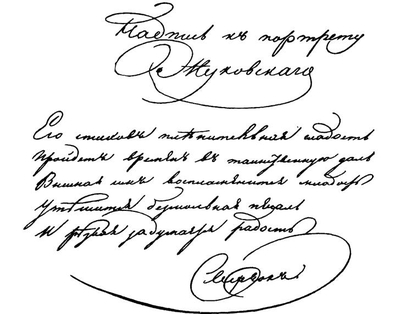 Надпись къ портрету
Жуковскаго
Его стиховъ плѣнительная сладость
Пройдетъ временъ въ таинственную даль
Внимая имъ воспламенится младость
Утѣшится безмолвная печаль
И рѣзвая задумается радость
Сверчокъ